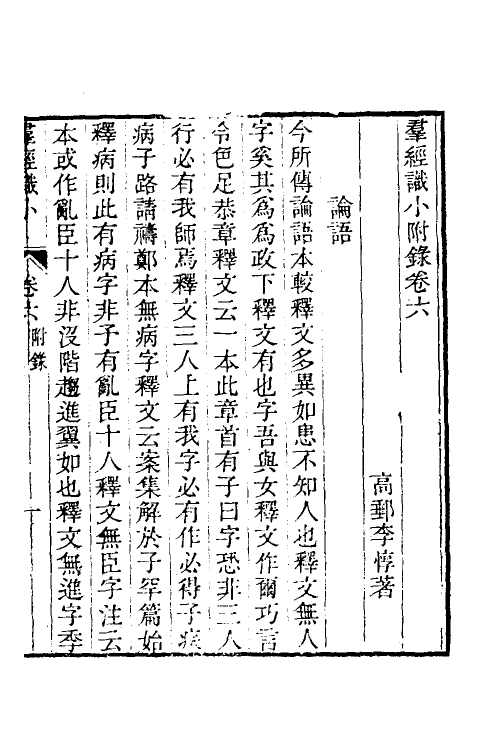 羣經識小附錄卷六
高郵李惇著
論語
今所傳論語本較釋文多異如患不知人也釋文無人
字奚其爲爲政下釋文有也字吾與女釋文作爾巧言
令色足恭章釋文云一本此章首有子曰字恐非三人
行必有我師焉釋文三人上有我字必有作必得子疾
病子路請禱鄭本無病字釋文云案集解於子罕篇始
釋病則此有病字非予有亂臣十人釋文無臣字注云
本或作亂臣十人非沒階趨進翼如也釋文無進字季
羣經識小
卷六附錄
一